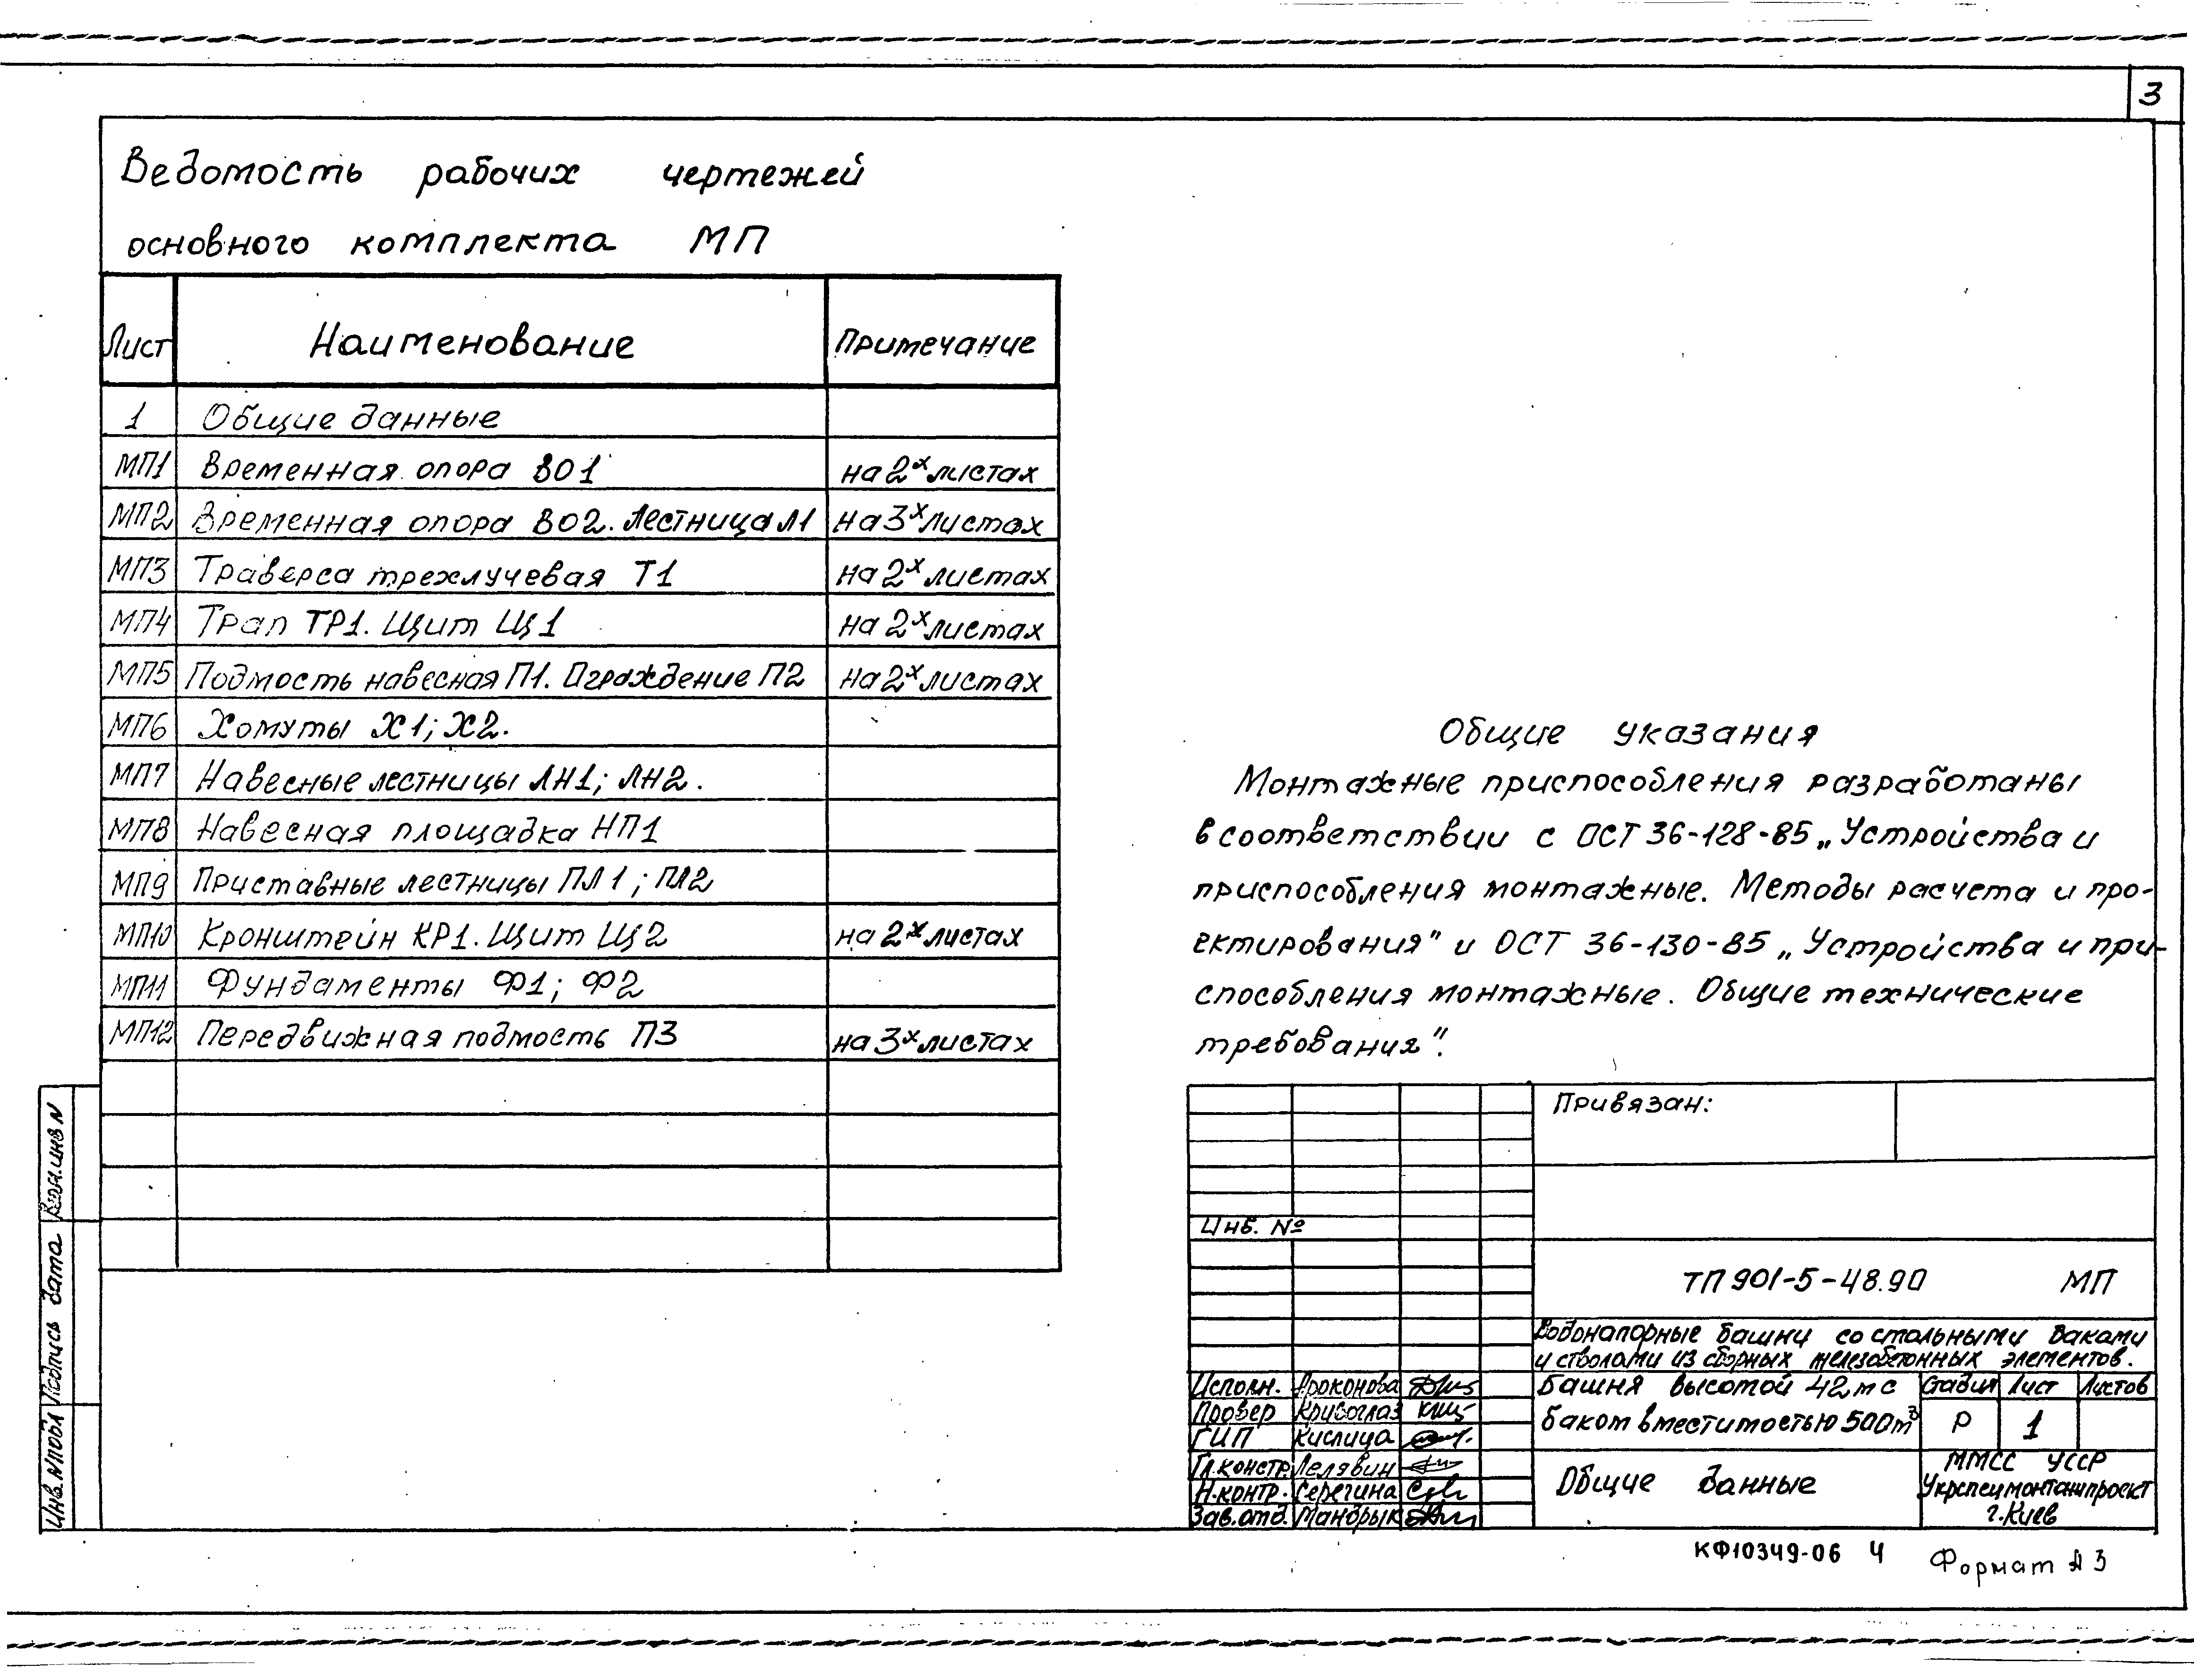 3
Ведомость рабочих чертежей
основного комплекта МП
Лист Наименование Примечание
1 Общие данные
МП1 Временная опора ВО1 на 2х листах
МП2 Временная опора ВО2. Лестница Л1 на 3х листах
МП3 Траверса трехлучевая Т1 на 2х листах
МП4 Трап ТР1. Щит Щ1 на 2х листах
МП5 Подмость навесная П1. Ограждение П2 на 2х листах
МП6 Хомуты Х1; Х2.
МП7 Навесные лестницы ЛН1; ЛН2.
МП8 Навесная площадка НП1
МП9 Приставные лестницы ПЛ1; ПЛ2
МП10 Кронштейн КР1. Щит Щ2 на 2х листах
МП11 Фундаменты Ф1; Ф2
МП12 Передвижная подмость П3 на 3х листах
Общие указания
Монтажные приспособления разработаны
в соответствии с ОСТ 36-128-85 „Устройства и
приспособления монтажные. Методы расчета и про-
ектирования" и ОСТ 36-130-85 „Устройства и при-
способления монтажные. Общие технические
требования".
Привязан:
Инв. №
ТП 901-5-48.90 МП
Водонапорные башни со стальными баками
и стволами из сборных железобетонных элементов.
Исполн. Проконова
Провер Кривоглаз
ГИП Кислица
Гл.констр. Лелявин
Н.контр. Серегина
Зав.отд. Мандрык
Башня высотой 42м с
баком вместимостью 500м³
Стадия Лист Листов
Р 1
Общие данные
ММСС УССР
Укрспецмонтажпроект
г.Киев
КФ10349-06 4
Формат А3
Инв.Nподл Подпись дата Взам.инв N